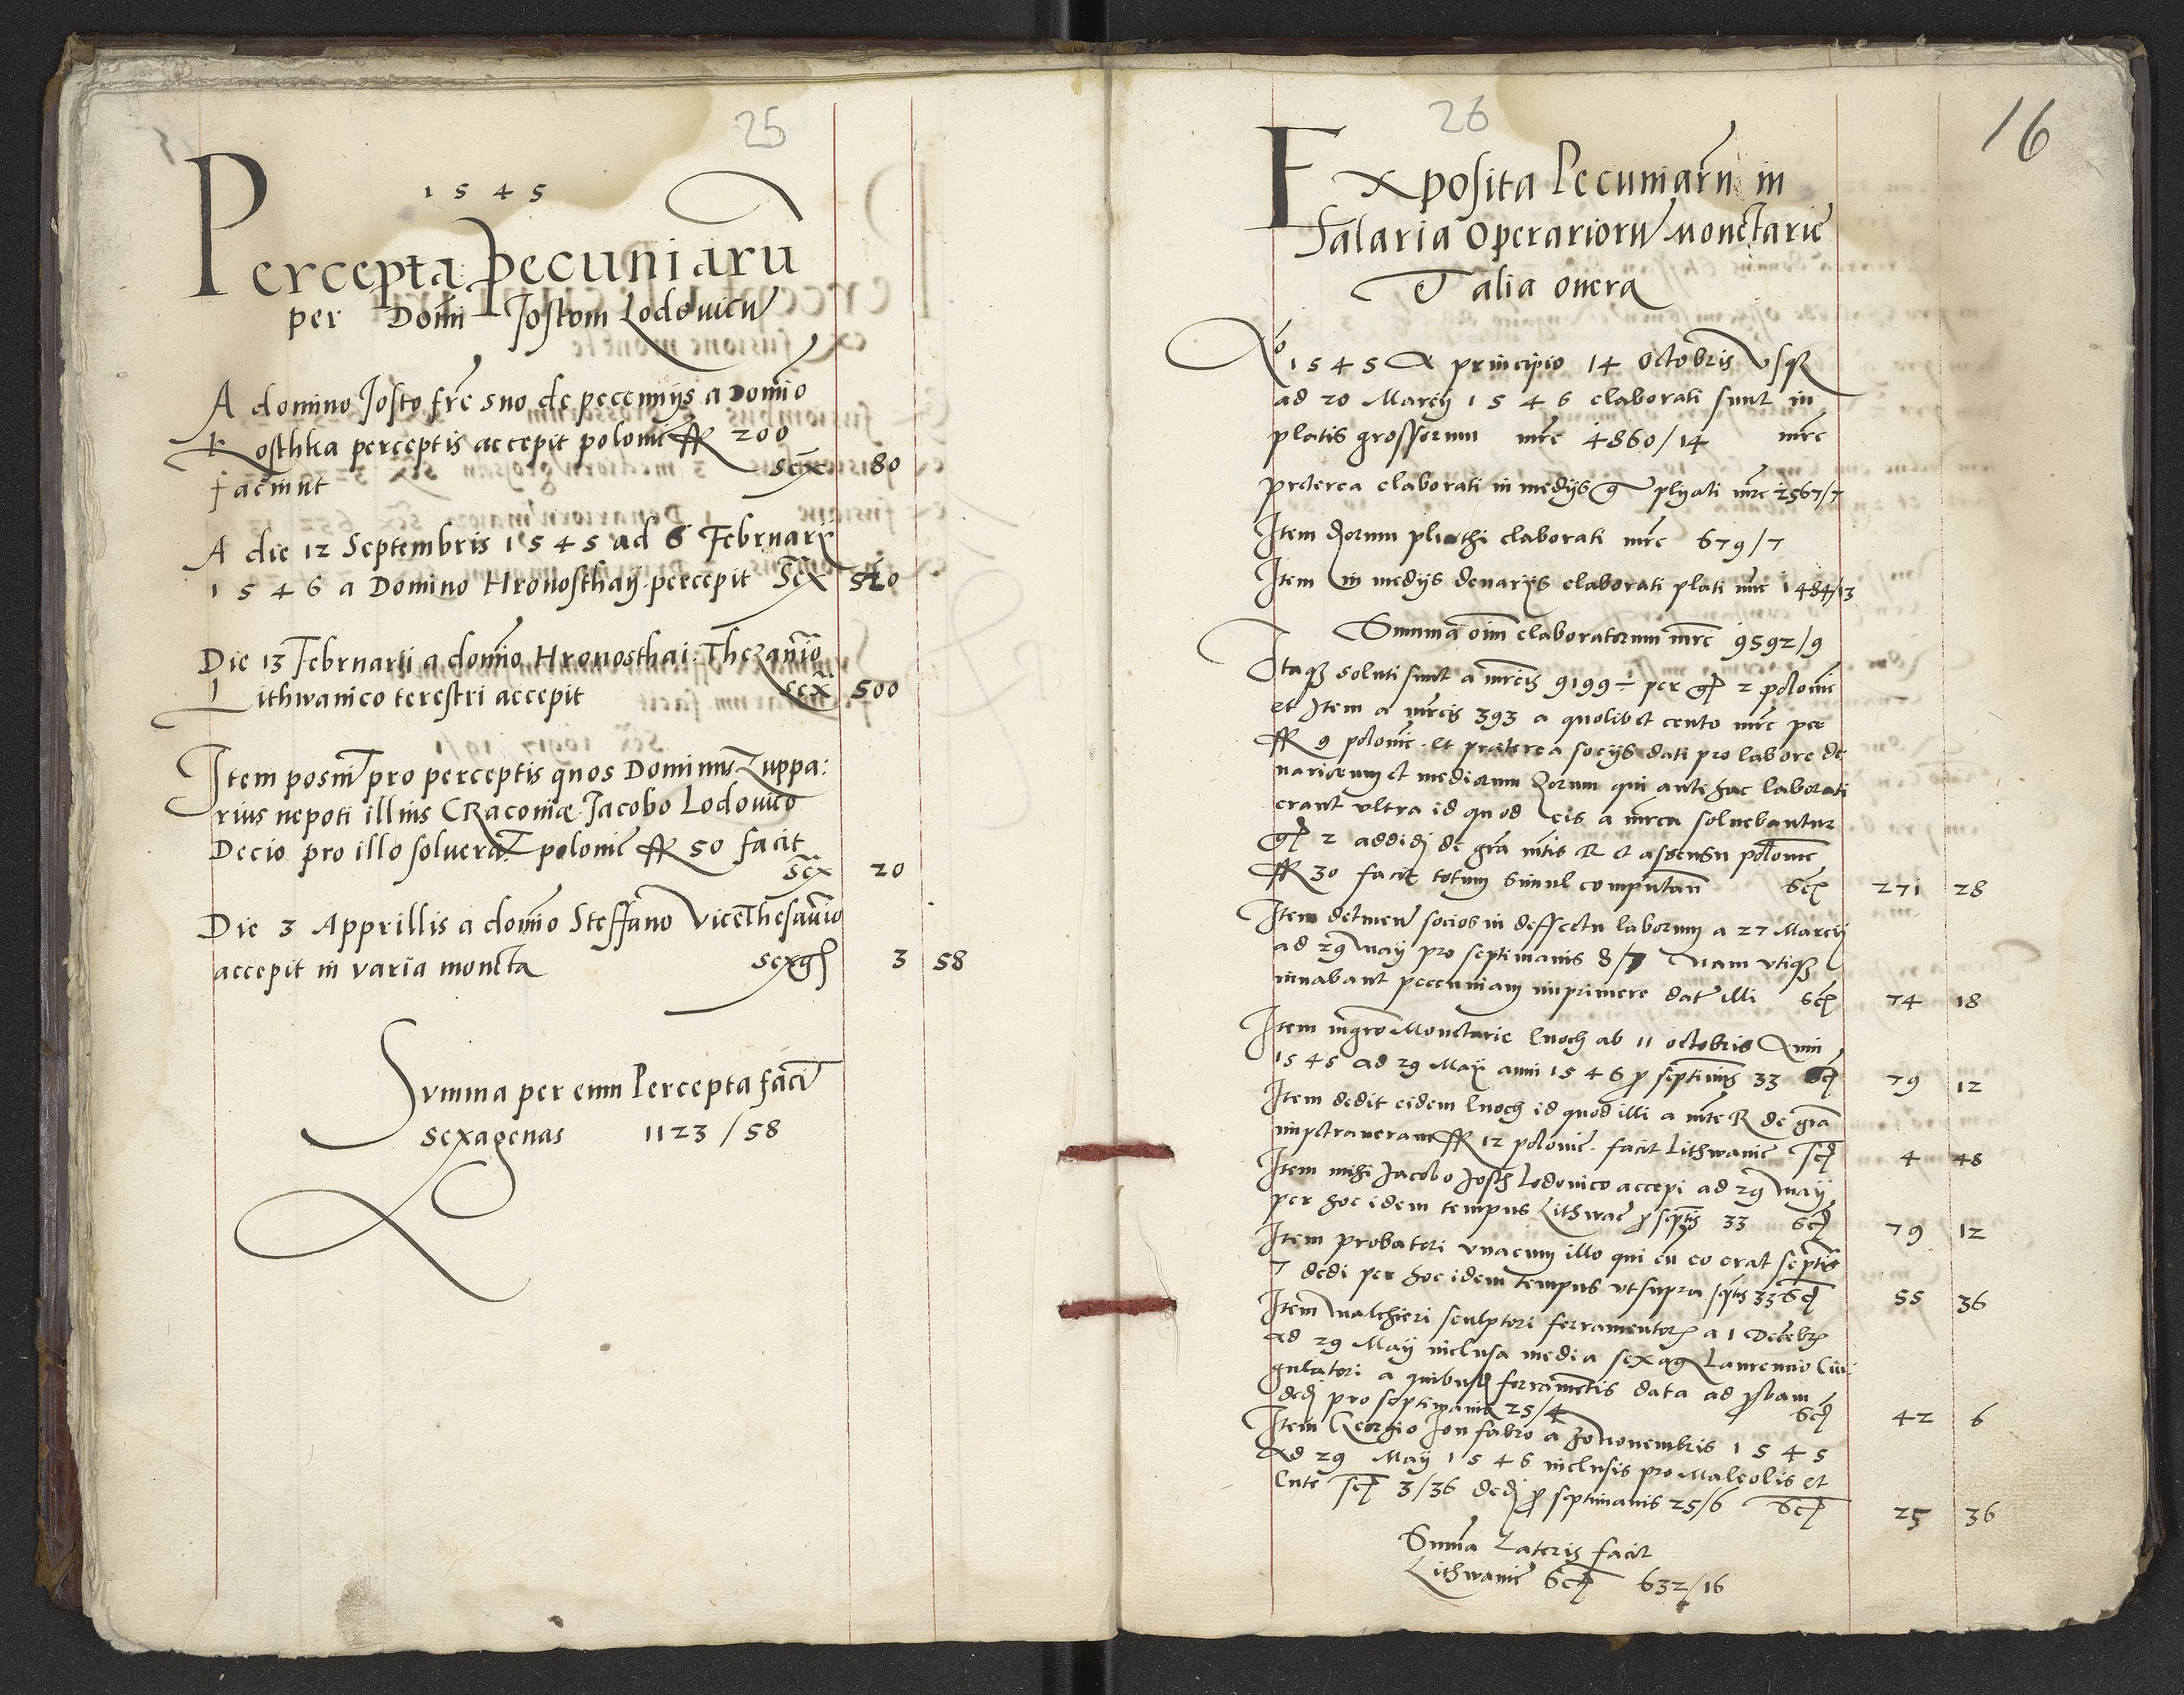 25
1 5 4 5
Percepta pecuniarū
per Domī Jostum Lodovicū
A domino Josto frē suo de pecunijs a Domīo
Kosthka perceptis accepit poloni fl 200
faciunt sex̄ 80
A die 12 Septembris 1545 ad 6 Februarij
1546 a Domino Hronosthaij percepit Sex̄ 520
Die 13 Februarii a domīo Hronosthai Thezaurīo
Lithwanico terestri accepit sex̄ 500
Item posuit pro perceptis quos Dominus Zuppa:
rius nepoti illius CRacoviæ Jacobo Lodovico
Decio pro illo solverat polonic̄ fl 50 facit
Sex̄ 20
Die 3 Apprillis a domīo Steffano Vicethesaurīo
accepit in varia moneta sexgs 3 58
Summa per eum Percepta facit
sexagenas 1123/58
26
16
Exposita Pecuniarū in
Salaria Operariorū Monetarie
Et alia onera
Aō 1545 A principio 14 Octobris usq
ad 20 Marcij 1546 elaborati sunt in
platis grossorum mrc 4860/14 mrc
preterea elaborati in medijs g plyati mrc 2567/7
Item dorum pliathi elaborati mrc 679/7
Item in medijs denarijs elaborati plati mrc 1484/13
Summa oim elaboratorum mrc 9592/9
Itaq soluti sunt a mrcis 9199 ÷ per gs 2 polonic
et Item a mrcis 393 a quolibet cento mrc per
fl 9 polonic et praeterea socijs dati pro labore de
nariorum et mediorum dorum qui ante hac laborati
erant ultra id quod eis a mrca solvebantur
gs 2 addidi de gra mtis R et assensu polonic
fl 30 facit totum simul computan sex 271 28
Item detinen socios in deffectu laborum a 27 Marcij
ad 29 Maij pro septimanis 8/7 Nam utiq
iuvabant pecuniam imprimere dat illi sex 74 18
Item mgro Monetarie Enoch ab 11 octobris Anni
1545 ad 29 Maij anni 1546 p septimis 33 sex 79 12
Item dedit eidem Enoch id quod illi a mte R de gra
impetraveram fl 12 polonic. facit Lithwanic sex 4 48
Item mihi Jacobo Josth Lodovico accepi ad 29 Maij
per hoc idem tempus Lithwac p septis 33 sex 79 12
Item probatori unacum illo qui cu eo erat septis
7 dedi per hoc idem tempus ut supra septis 33 sex 55 36
Item Malchieri sculptori ferramentor a 1 Decebr
ad 29 Maij inclusa media sexag Laurencio Cin
gulatori a quibusd ferramētis data ad probam
dedi pro septimanis 25/4 sex 42 6
Item Georgio Jon fabro a 30 Novembris 1545
ad 29 Maij 1546 inclusis pro Maleolis et
Cute sex 3/36 dedi p septimanis 25/6 sex 25 36
Summa Lateris facit
Lithwanic Sex 632/16